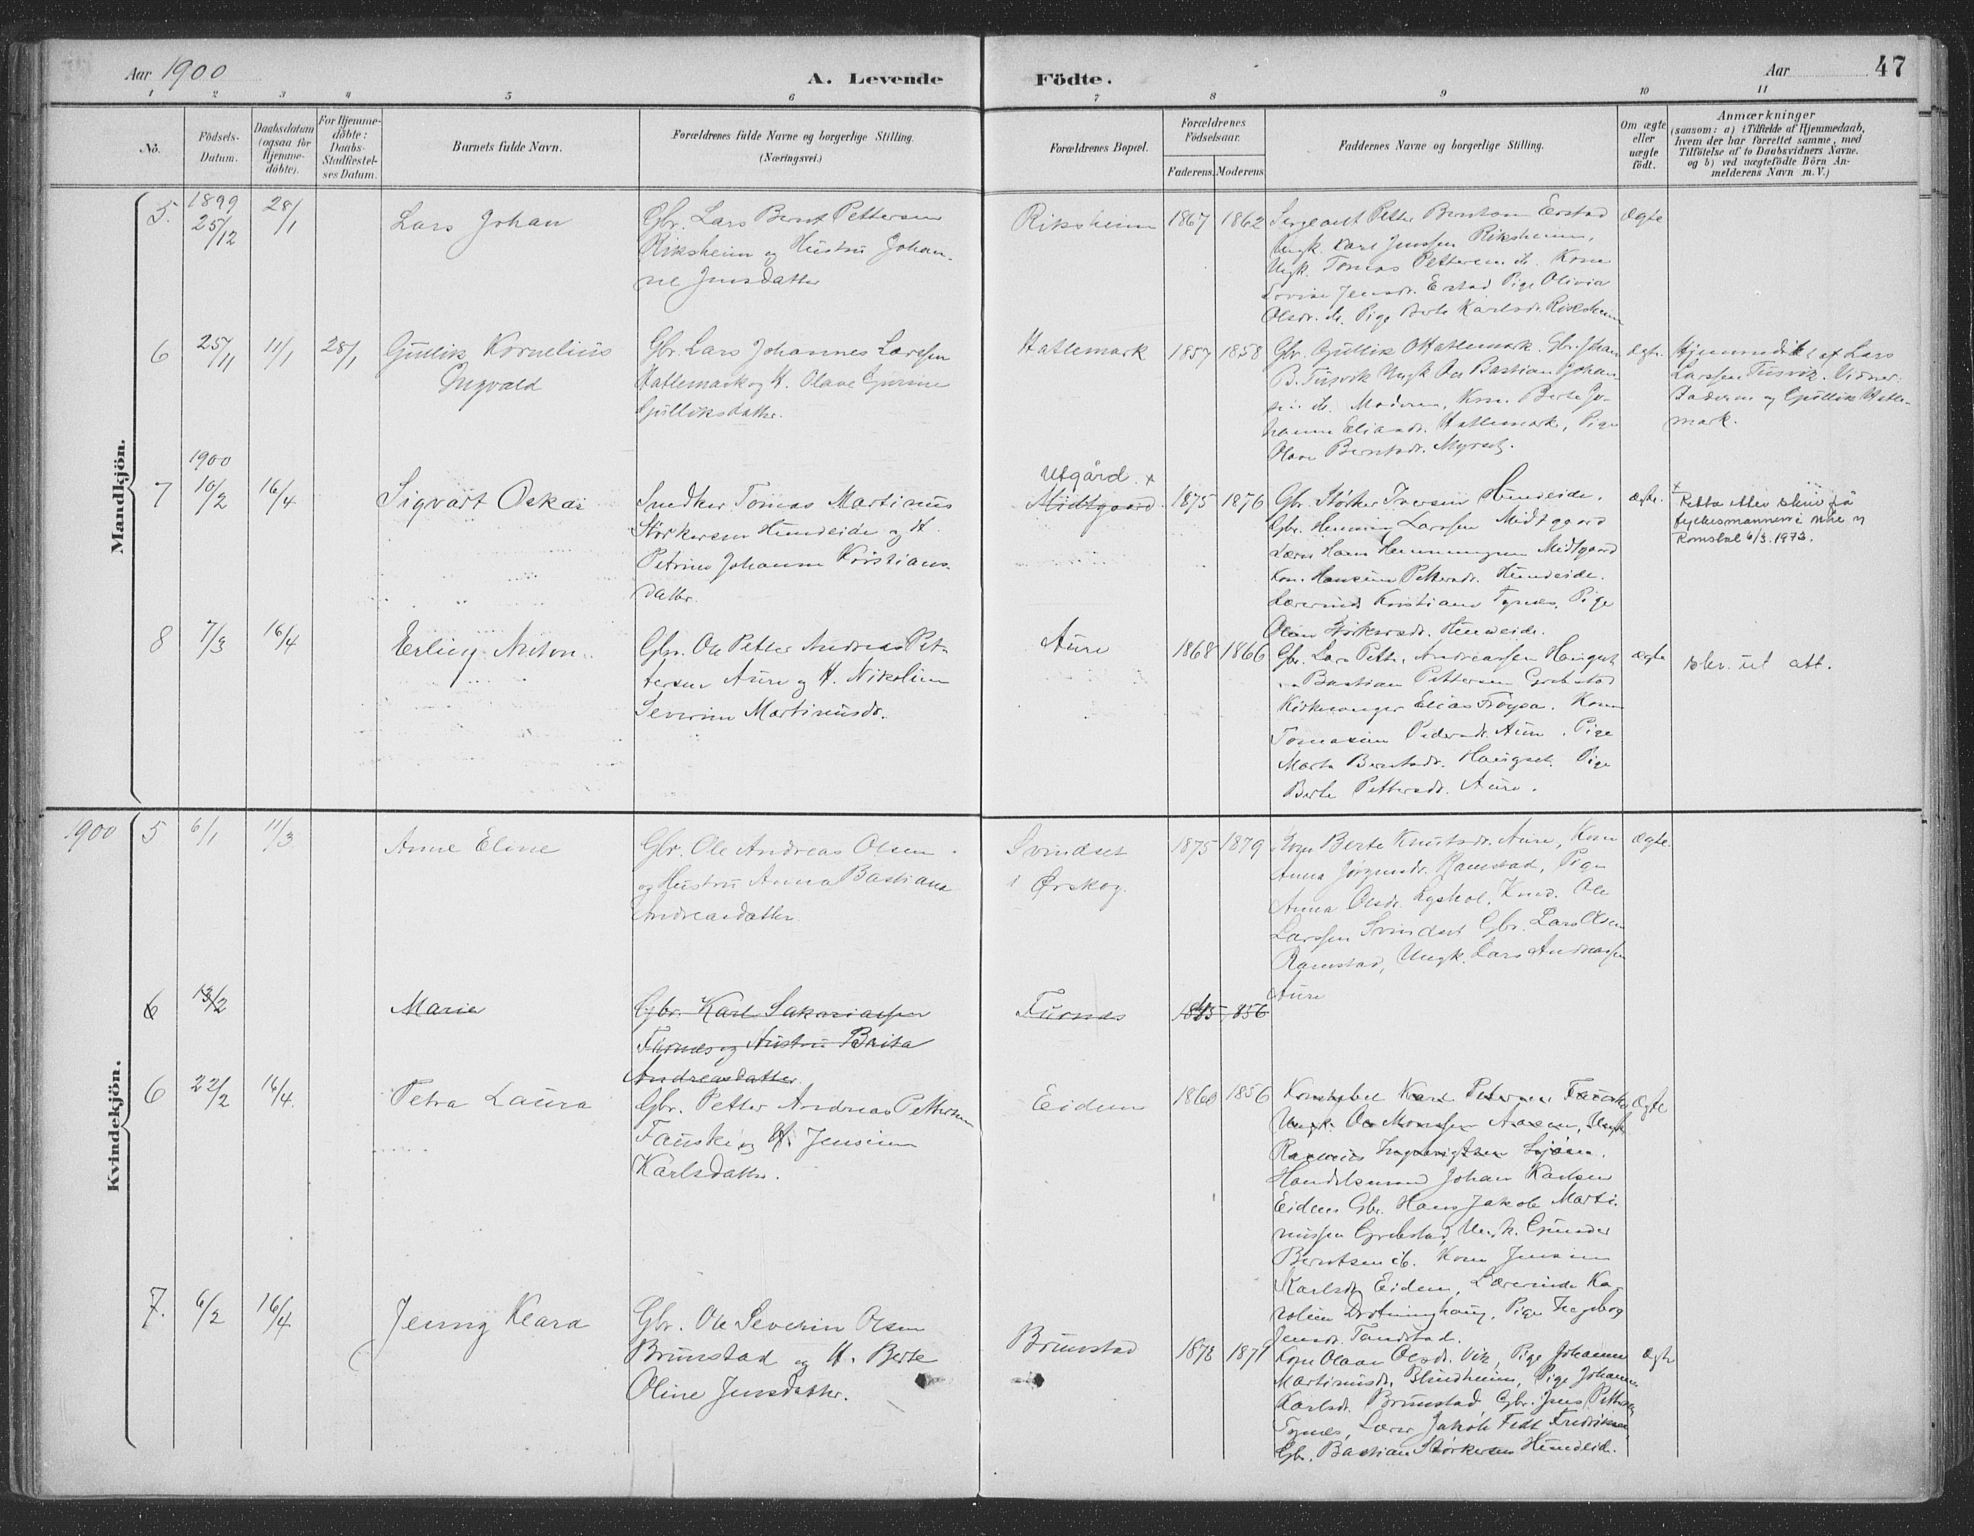 Aar 1900
A. Levende
Födte.
Aar
47
1 2 3 4 5 6 7 8 9 10 11
No.
Födsels-
Datum.
Daabsdatum
(ogsaa for
Hjemme-
döbte).
For Hjemme-
döbte:
Daabs-
Stadfæstel-
ses Datum.
Barnets fulde Navn.
Forældrenes fulde Navne og borgerlige Stilling.
(Næringsvei.)
Forældrenes Bopæl.
Forældrenes
Födselsaar.
Faderens. Moderens.
Faddernes Navne og borgerlige Stilling.
Om ægte
eller
uægte
födt.
Anmærkninger
(saasom: a) i Tilfælde af Hjemmedaab,
hvem der har forrettet samme, med
Tilföielse af to Daabsvidners Navne.
og b) ved uægtefödte Börn An-
melderens Navn m. V.)
Mandkjön.
5. 1899 25/12 28/1
Lars Johan
Gbr. Lars Bernt Pettersen
Riksheim og Hustru Johan-
ne Jensdatter
Riksheim
1867 1862
Sergeant Petter Berntsen Erstad
Ungk. Karl Jenssen Riksheim,
Ungk. Tomas Pettersen ib. Kone
Lovise Jensdr. Erstad Pige Olivia
Olsdr. ib. Pige Berte Karlsdr. Riksheim
Ægte
6 25/11 11/1 28/1
Gullik Kornelius
Ingvald
Gbr. Lars Johannes Larssen
Hatlemark og H. Olave Gurine
Gulliksdatter.
Hatlemark
1857 1858
Gbr. Gullik O Hatlemark. Gbr. Johan
B. Tusvik Ungk Ole Bastian Johan-
sen ib. Moderen, Kone Berte Jo-
hanne Eliasdr. Hatlemark, Pige
Olave Berntsdr. Myrset.
Ægte
Hjemmedöbt af Lars
Larssen Tusvik. Vidner:
Faderen og Gullik Hatle-
mark.
7 1900 10/2 16/4
Sigvart Oskar
Snedker Tomas Martinus
Störkersen Hundeide og H.
Petrine Johanne Kristians-
datter.
Utgård x
Midtgaard
1875 1876
Gbr. Störker Iversen Hundeide.
Gbr. Henning Larssen Midtgaard
Lærer Hans Henningsen Midtgaard
Kone Hansine Pettersdr. Hundeide.
Lærerinde Kristiane Tynes, Pige
Oline Störkersdr. Hundeide.
ægte.
x
Retta etter skriv frå
fylkesmannen i Møre og
Romsdal 6/3. 1973.
8 7/3 16/4
Erling Anton
Gbr. Ole Petter Andreas Pet-
tersen Aure og H. Nikoline
Severine Martinusdr.
Aure
1868 1866
Gbr. Lars Petter Andreassen Haugset
" Bastian Pettersen Grebstad
Kirkesanger Elias Fröysa. Kone
Tomasine Pedersdr. Aure. Pige
Marta Berntsdr. Haugset. Pige
Berte Pettersdr. Aure.
ægte
skr. ut att.
Kvindekjön.
1900 5 6/1 11/3
Anne Eline
Gbr. Ole Andreas Olsen
og Hustru Anna Bastiana
Andreasdatter
Svindset
i Ørskog.
1875 1879
Kone Berte Knutsdr. Aure, Kone
Anna Jörgensdr. Ramstad, Pige
Anna Olsdr. Lyshol, Ole
Larssen Svindset Gbr. Lars Olsen
Ramstad, Ungk. Lars Andreassen
Aure
Ægte
6 13/2
Marie
Gbr. Karl Sakariassen
Furnes og Hustru Brita
Andreasdatter
Furnæs
1856
6 22/2 16/4
Petra Laura
Gbr. Petter Andreas Pettersen
Fauske og H. Jensine
Karlsdatter.
Eidem
1860 1856
Konstabel Karl Petersen Fauske
Ungk. Ole Monssen Aasen, Ungk.
Rasmus Ingebrigtsen Sjöen.
Handelsmand Johan Karlsen
Eidem Gbr. Hans Jakob Marti-
nussen Grebstad, Ungk. Gunder
Berntsen ib. Kone Jensine
Karlsdr. Eidem, Lærerinde Ka-
roline Drotninghaug, Pige Ingeborg
Jensdr. Tandstad.
Ægte
7. 6/2 16/4
Jenny Klara
Gbr. Ole Severin Olsen
Brunstad og H. Berte
Oline Jensdatter.
Brunstad
1878 1879
Kone Olave Olsdr. Vik, Pige Johanne
Martinusdr. Blindheim, Pige Johanne
Karlsdr. Brunstad, Gbr. Jens Pettersen
Tynes, Lærer Jakob Fedt Fredriksen,
Gbr. Bastian Störkersen Hundeide.
Ægte